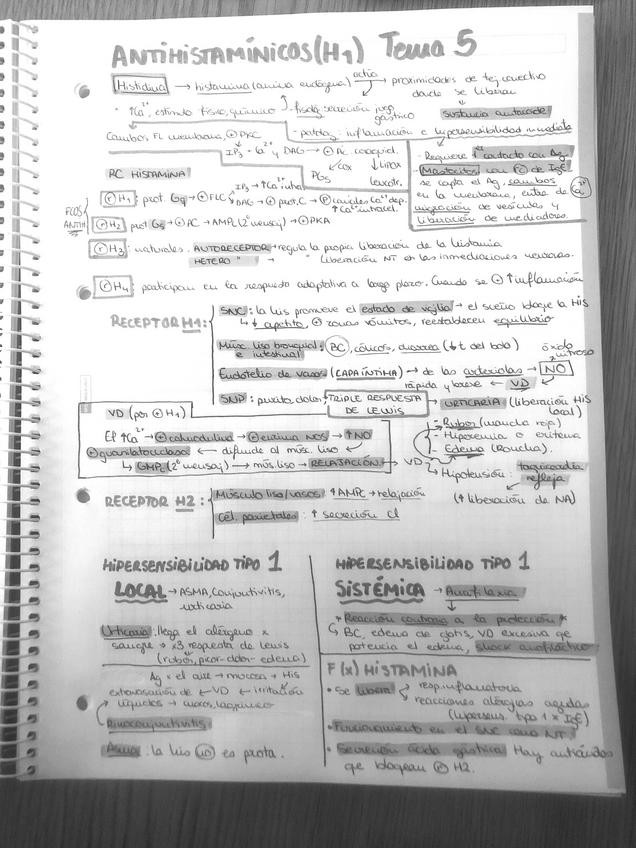 ANTIHISTAMÍNICOS (H1) Tema 5
Histidina → histamina (amina endógena) actúa → proximidades de tej conectivo
donde se liberan
• ↑Ca2+, estímulo físico, químico fisiolg: secreción jugo gástrico
sustancia autacoide
Cambos FL membrana, ⊕ PKC
patolg: inflamación e hipersensibilidad inmediata
IP3 → Ca2+ y DAG → ⊕ Ac. araquid.
COX LIPOX
PGs leucotr.
- Requiere 1er contacto con Ag.
- Mastocitos con IgE
se capta el Ag, cambos
en la membrana, entra de Ca2+
migración de vesículas y
liberación de mediadores.
RC HISTAMINA
FCOS ANTIH
rH1: prot. Gq → ⊕ FLC IP3 → ↑Ca2+
DAG → ⊕ prot. C → canales Ca2+ dep.
↑Ca2+ intracel.
rH2: prot Gs → ⊕ AC → AMPc (2º mensaj) → ⊕ PKA
rH3: naturales. AUTORECEPTOR → regula la propia liberación de la histamina
HETERO " → " liberación NT en las inmediaciones
rH4: participan en la respuesta adaptativa a largo plazo. Cuando se ⊕ ↑ inflamación
RECEPTOR H1:
SNC: la his promueve el estado de vigilia → el sueño bloqea la HIS
↓ apetito, ⊕ zonas vómitos, reestablecen equilibrio
Músc. liso bronquial e intestinal: BC, cólicos, diarrea (↓t del bolo)
Endotelio de vasos (CAPA ÍNTIMA) → de las arteriolas → NO óxido nitroso
rápida y breve ← VD
SNP: prurito, dolor TRIPLE RESPUESTA DE LEWIS → URTICARIA (liberación HIS local)
VD (por ⊕ H1)
El ↑Ca2+ → ⊕ calmodulina → ⊕ enzima NOS → ↑NO
⊕ guanilato ciclasa ← difunde al músc. liso
↳ GMPc (2º mensaj) → mús. liso → RELAJACIÓN → VD
- Rubor (mancha roja)
- Hiperemia o eritema
- Edema (Roncha).
Hipotensión: taquicardia refleja
(↑ liberación de NA)
RECEPTOR H2:
Músculo liso/vasos: ↑AMPc → relajación
Cél. parietales: ↑ secreción Cl
HIPERSENSIBILIDAD TIPO 1
LOCAL → ASMA, conjuntivitis,
urticaria
Urticaria: llega el alérgeno x
sangre → x3 respuesta de lewis
(rubor, picor-dolor-edema)
Ag x el aire → mucosa → His
extravasación de ← VD ← irritación
líquidos → moco, lagrimeo
Rinoconjuntivitis
Asma: la his no es prota.
HIPERSENSIBILIDAD TIPO 1
SISTÉMICA → Anafilaxia
* Reacción contraria a la protección *
↳ BC, edema de glotis, VD excesiva qe
potencia el edema, shock anafiláctico.
F(x) HISTAMINA
• Se libera resp. inflamatoria
reacciones alérgicas agudas
(hipersens. tipo 1 x IgE)
• Funcionamiento en el SNC como NT
• Secreción ácida gástrica Hay antiácidos
qe bloquean H2.